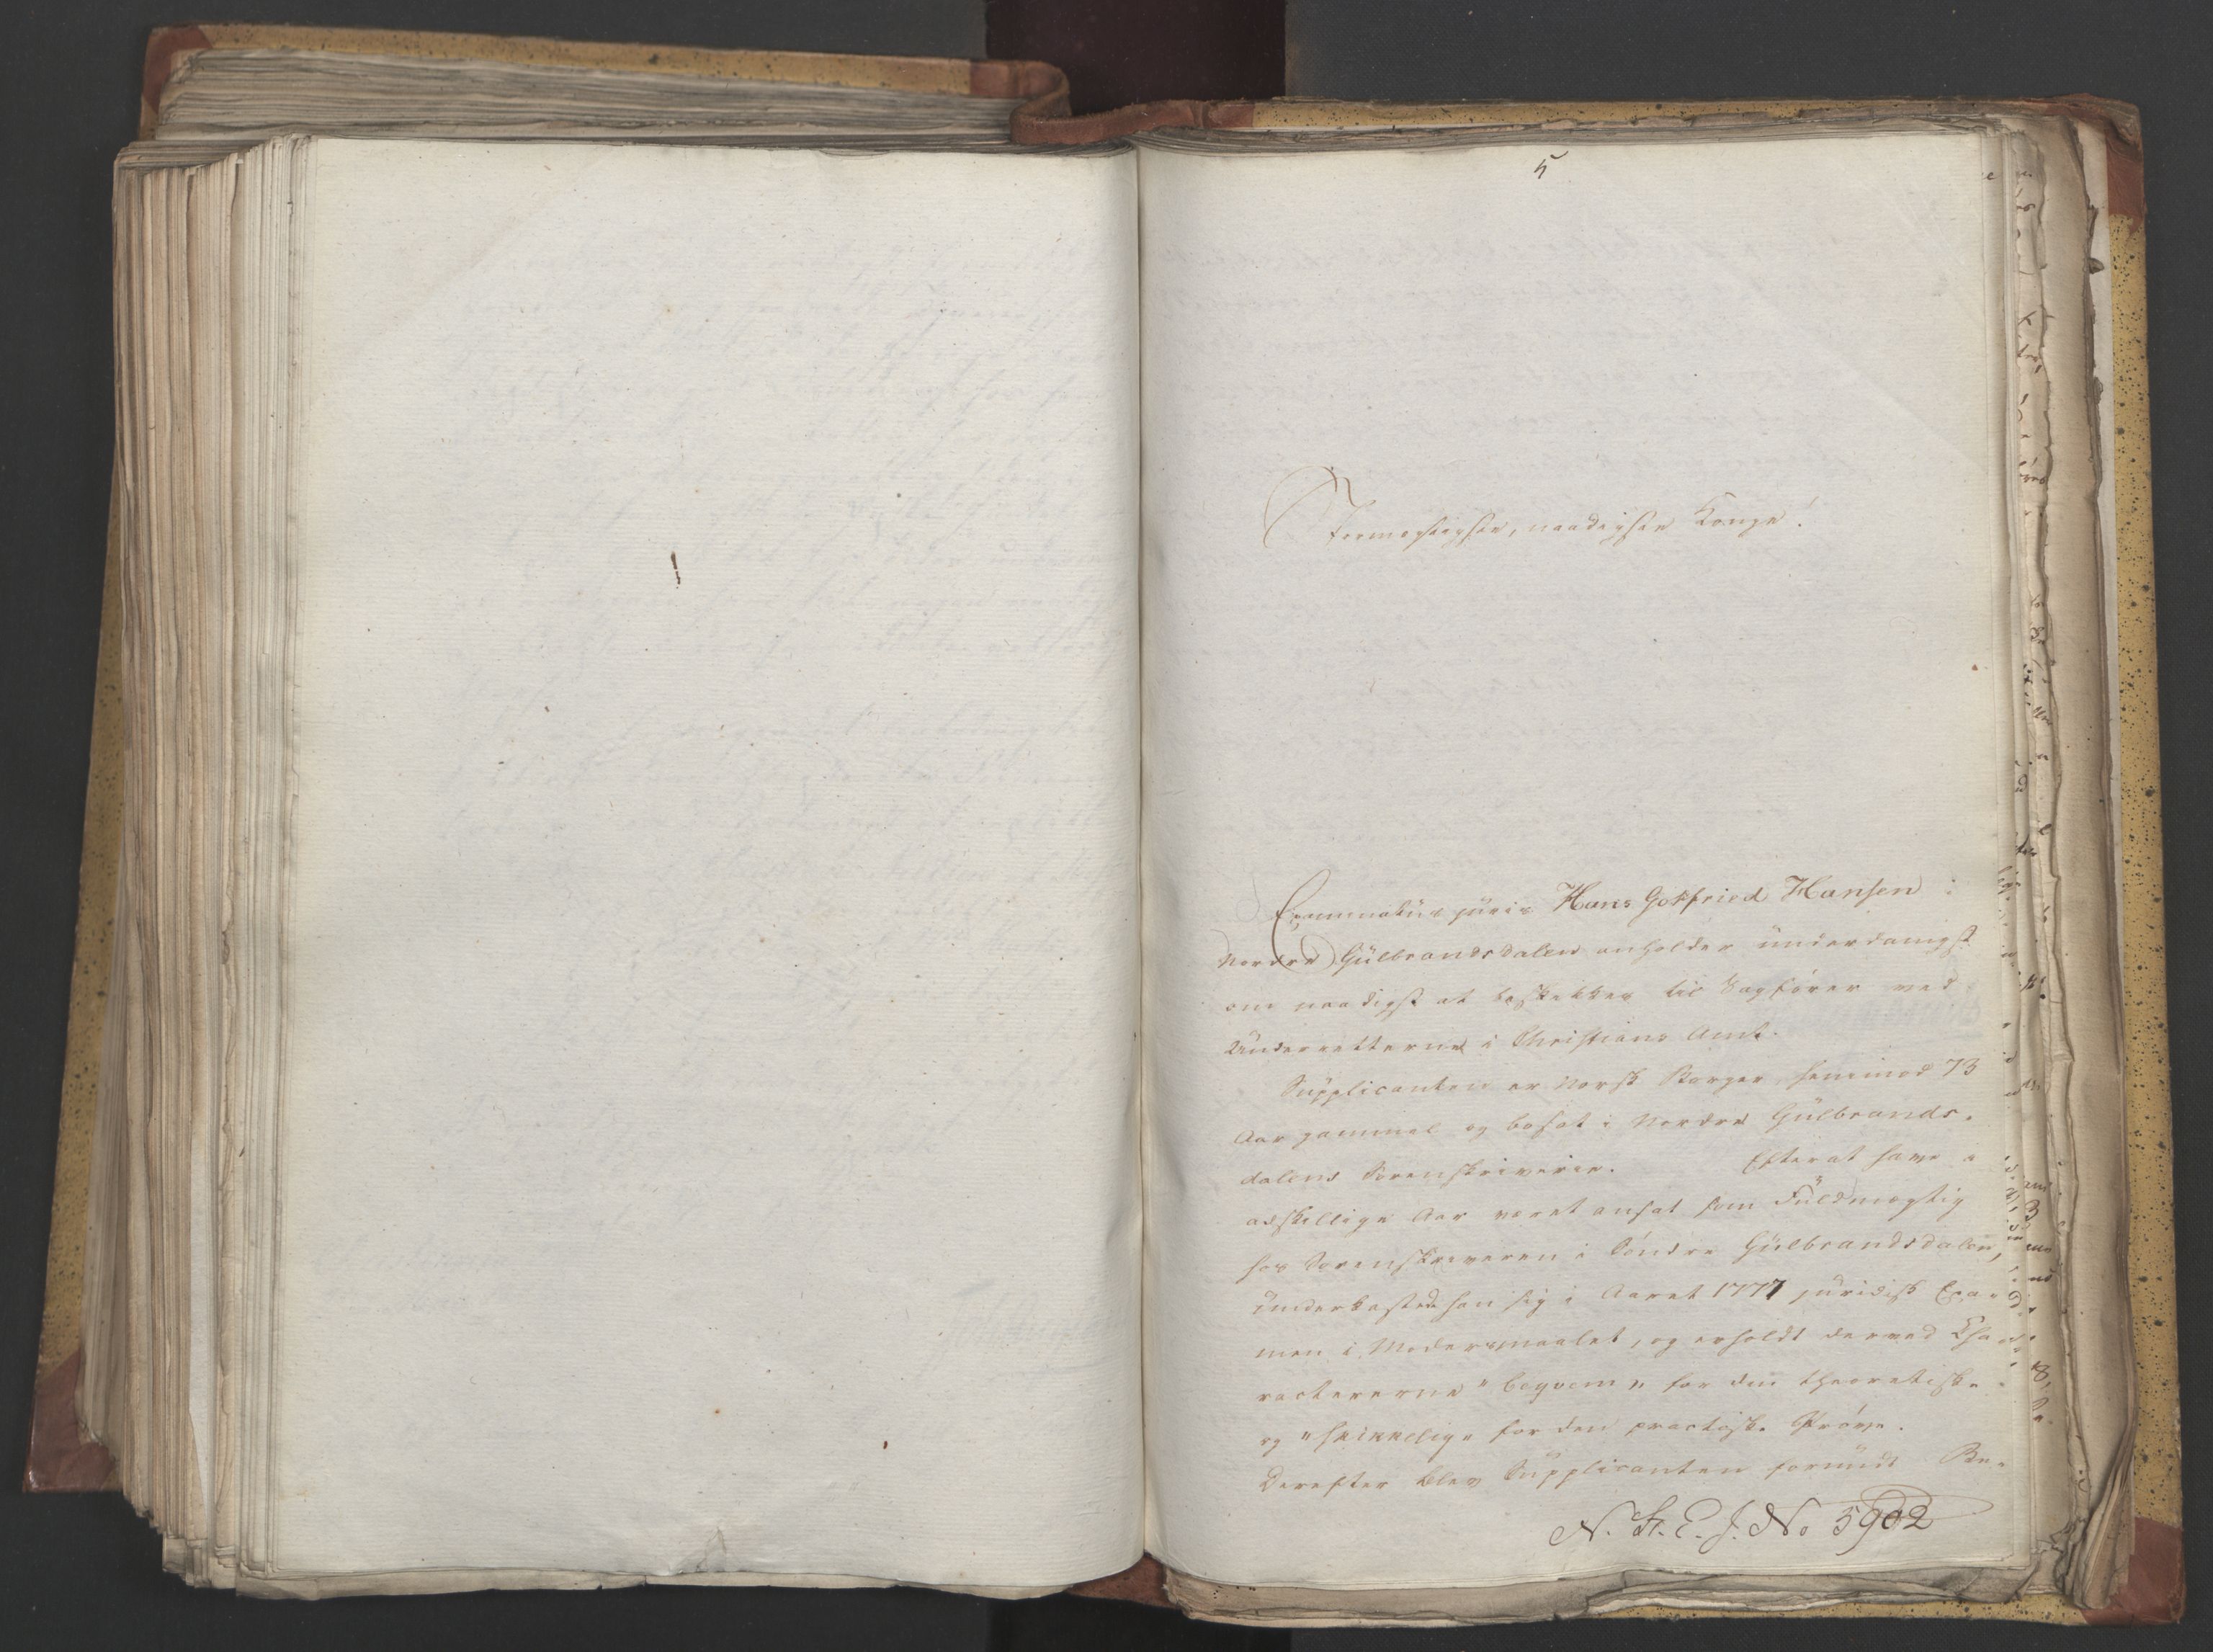 5
Stormægtigste, naadigste Konge!
Examinatus juris Hans Gottfried Hansen i
Nordre Gülbrandsdalen anholder ünderdanigst
om naadigst at beskikkes til Sagfører ved
Ünderretterne i Christians Amt.
Süpplicanten er Norsk Borger, henimod 73
Aar gammel og bosat i Nordre Gülbrands-
dalens Sorenskriverie. Efterat have
adskillige Aar været ansat som Füldmægtig
hos Sorenskriveren i Søndre Gülbrandsdalen,
ünderkastede han sig i Aaret 1777 juridisk Exa-
men i Modersmaalet, og erholdt derved Cha-
ractererne "beqvem" for den theoretiske
og "skikkelig" for den practiske Prøve.
Derefter blev Süpplicanten foründt Be-
N. St. E. J. No 5902